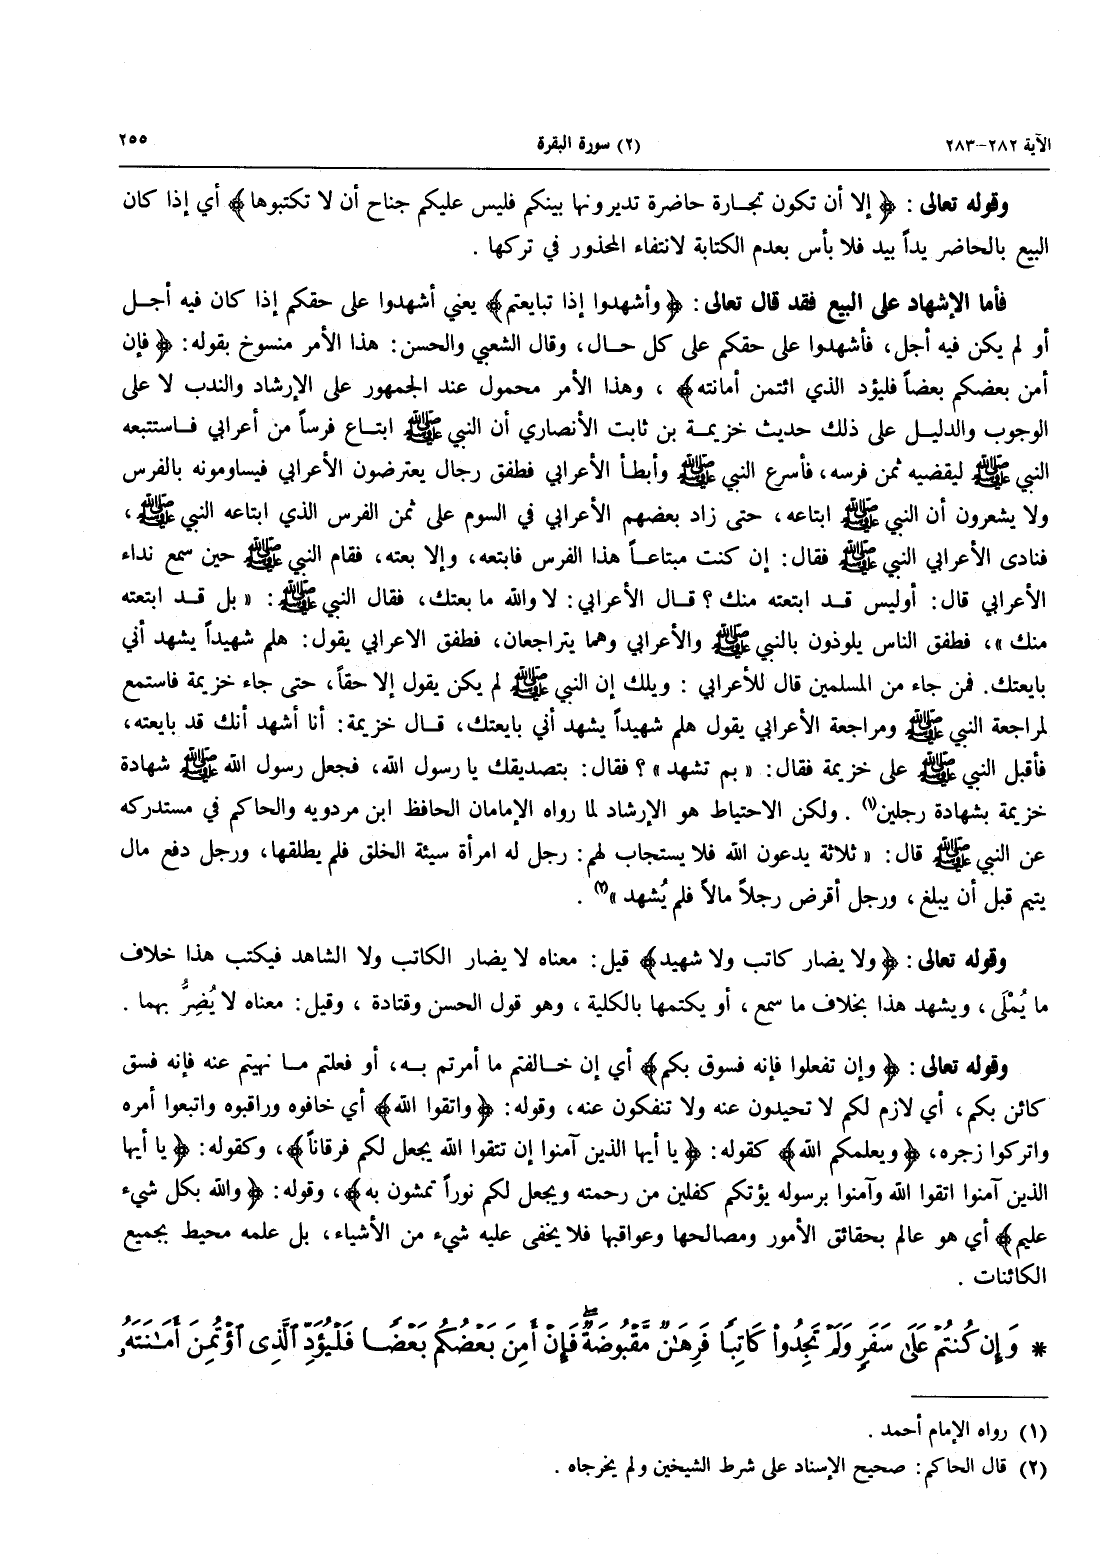 الآية ٢٨٢-٢٨٣ (٢) سورة البقرة ٢٥٥
وقوله تعالى : ﴿ إلا أن تكون تجارة حاضرة تديرونها بينكم فليس عليكم جناح أن لا تكتبوها﴾ أي إذا كان
البيع بالحاضر يداً بيد فلا بأس بعدم الكتابة لانتفاء المحذور في تركها .
فأما الإشهاد على البيع فقد قال تعالى : ﴿ وأشهدوا إذا تبايعتم﴾ يعني أشهدوا على حقكم إذا كان فيه أجل
أو لم يكن فيه أجل، فأشهدوا على حقكم على كل حال، وقال الشعبي والحسن: هذا الأمر منسوخ بقوله: ﴿ فإن
أمن بعضكم بعضاً فليؤد الذي ائتمن أمانته﴾ ، وهذا الأمر محمول عند الجمهور على الإرشاد والندب لا على
الوجوب والدليل على ذلك حديث خزيمة بن ثابت الأنصاري أن النبي ﷺ ابتاع فرساً من أعرابي فاستتبعه
النبي ﷺ ليقضيه ثمن فرسه، فأسرع النبي ﷺ وأبطأ الأعرابي فطفق رجال يعترضون الأعرابي فيساومونه بالفرس
ولا يشعرون أن النبي ﷺ ابتاعه، حتى زاد بعضهم الأعرابي في السوم على ثمن الفرس الذي ابتاعه النبي ﷺ ،
فنادى الأعرابي النبي ﷺ فقال: إن كنت مبتاعاً هذا الفرس فابتعه، وإلا بعته، فقام النبي ﷺ حين سمع نداء
الأعرابي قال: أوليس قد ابتعته منك؟ قال الأعرابي: لا والله ما بعتك، فقال النبي ﷺ: « بل قد ابتعته
منك »، فطفق الناس يلوذون بالنبي ﷺ والأعرابي وهما يتراجعان، فطفق الاعرابي يقول: هلم شهيداً يشهد أني
بايعتك. فمن جاء من المسلمين قال للأعرابي : ويلك إن النبي ﷺ لم يكن يقول إلا حقاً، حتى جاء خزيمة فاستمع
لمراجعة النبي ﷺ ومراجعة الأعرابي يقول هلم شهيداً يشهد أني بايعتك، قال خزيمة: أنا أشهد أنك قد بايعته،
فأقبل النبي ﷺ على خزيمة فقال: « بم تشهد »؟ فقال: بتصديقك يا رسول الله، فجعل رسول الله ﷺ شهادة
خزيمة بشهادة رجلين(١) . ولكن الاحتياط هو الإرشاد لما رواه الإمامان الحافظ ابن مردويه والحاكم في مستدركه
عن النبي ﷺ قال: « ثلاثة يدعون الله فلا يستجاب لهم: رجل له امرأة سيئة الخلق فلم يطلقها، ورجل دفع مال
يتيم قبل أن يبلغ، ورجل أقرض رجلاً مالاً فلم يُشهد »(٢) .
وقوله تعالى : ﴿ ولا يضار كاتب ولا شهيد﴾ قيل: معناه لا يضار الكاتب ولا الشاهد فيكتب هذا خلاف
ما يُمْلَى، ويشهد هذا بخلاف ما سمع، أو يكتمها بالكلية، وهو قول الحسن وقتادة ، وقيل: معناه لا يُضِرُّ بهما .
وقوله تعالى : ﴿ وإن تفعلوا فإنه فسوق بكم﴾ أي إن خالفتم ما أمرتم به، أو فعلتم ما نهيتم عنه فإنه فسق
كائن بكم، أي لازم لكم لا تحيدون عنه ولا تنفكون عنه، وقوله: ﴿ واتقوا الله﴾ أي خافوه وراقبوه واتبعوا أمره
واتركوا زجره، ﴿ ويعلمكم الله﴾ كقوله: ﴿ يا أيها الذين آمنوا إن تتقوا الله يجعل لكم فرقاناً﴾، وكقوله: ﴿ يا أيها
الذين آمنوا اتقوا الله وآمنوا برسوله يؤتكم كفلين من رحمته ويجعل لكم نوراً تمشون به﴾، وقوله: ﴿ والله بكل شيء
عليم﴾ أي هو عالم بحقائق الأمور ومصالحها وعواقبها فلا يخفى عليه شيء من الأشياء، بل علمه محيط بجميع
الكائنات .
* وَإِن كُنتُمْ عَلَىٰ سَفَرٍ وَلَمْ تَجِدُوا۟ كَاتِبًا فَرِهَـٰنٌ مَّقْبُوضَةٌ ۖ فَإِنْ أَمِنَ بَعْضُكُم بَعْضًا فَلْيُؤَدِّ ٱلَّذِى ٱؤْتُمِنَ أَمَـٰنَتَهُۥ
(١) رواه الإمام أحمد .
(٢) قال الحاكم: صحيح الإسناد على شرط الشيخين ولم يخرجاه .